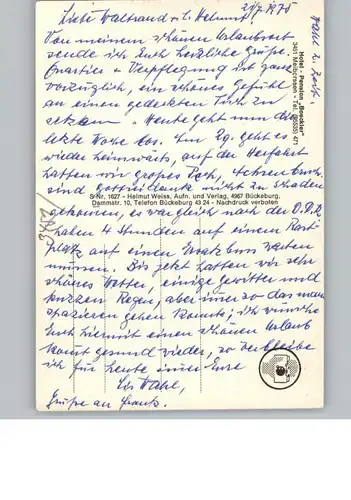 21/7 1975
Liebe Waltraud u. l. Helmut
Von meinem schönen Urlaubsort
sende ich Euch herzliche Grüße.
Quartier u Verpflegung ist ganz
vorzüglich, ein schönes Gefühl
an einen gedeckten Tisch zu
setzen. Heute geht nun die
letzte Woche los. Am 29. geht es
wieder heimwärts, auf der Herfahrt
hatten wir großes Pech, Achsenbruch
sind gottseidank nicht zu Schaden
gekommen, es war gleich nach der D.D.R
haben 4 Stunden auf einem Rast
platz auf einen Ersatzbus warten
müssen. Bis jetzt hatten wir sehr
schönes Wetter, einige Gewitter und
kurzen Regen, aber immer so das man
spazieren gehen konnte; ich wünsche
Euch hiermit einen schönen Urlaub
kommt gesund wieder, so verbleibe
ich für heute immer Eure
Grüße an Frank.
Hotel - Pension „Boeckler"
3451 Meinbrexen - Tel. (05555) 471
StNr. 1627 - Helmut Weiss, Aufn. und Verlag, 4967 Bückeburg,
Dammstr. 10, Telefon Bückeburg 43 24 - Nachdruck verboten